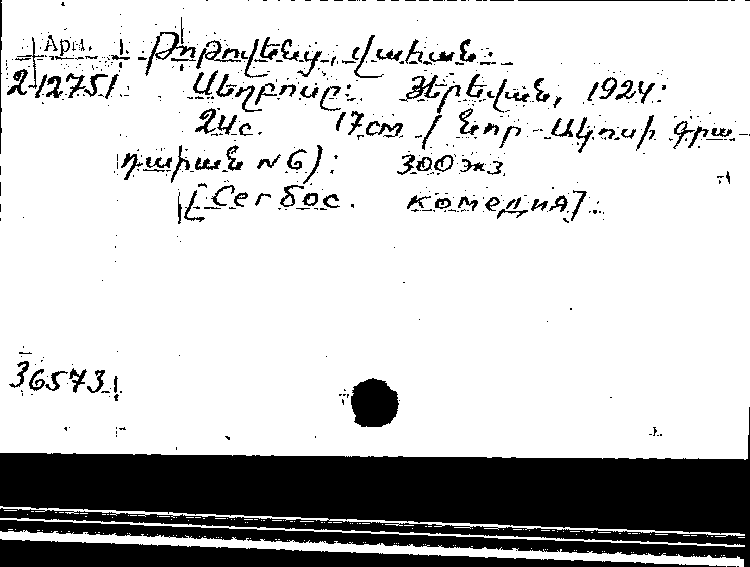 Арм. Թոթովենց, Վահան.
2/2751 Սեղբոսը: Յերեվան, 1924:
24с. 17cm (Նոր-Ակոսի գրա-
դարան N 6): 300 экз
[Сегбос. комедия].
36573